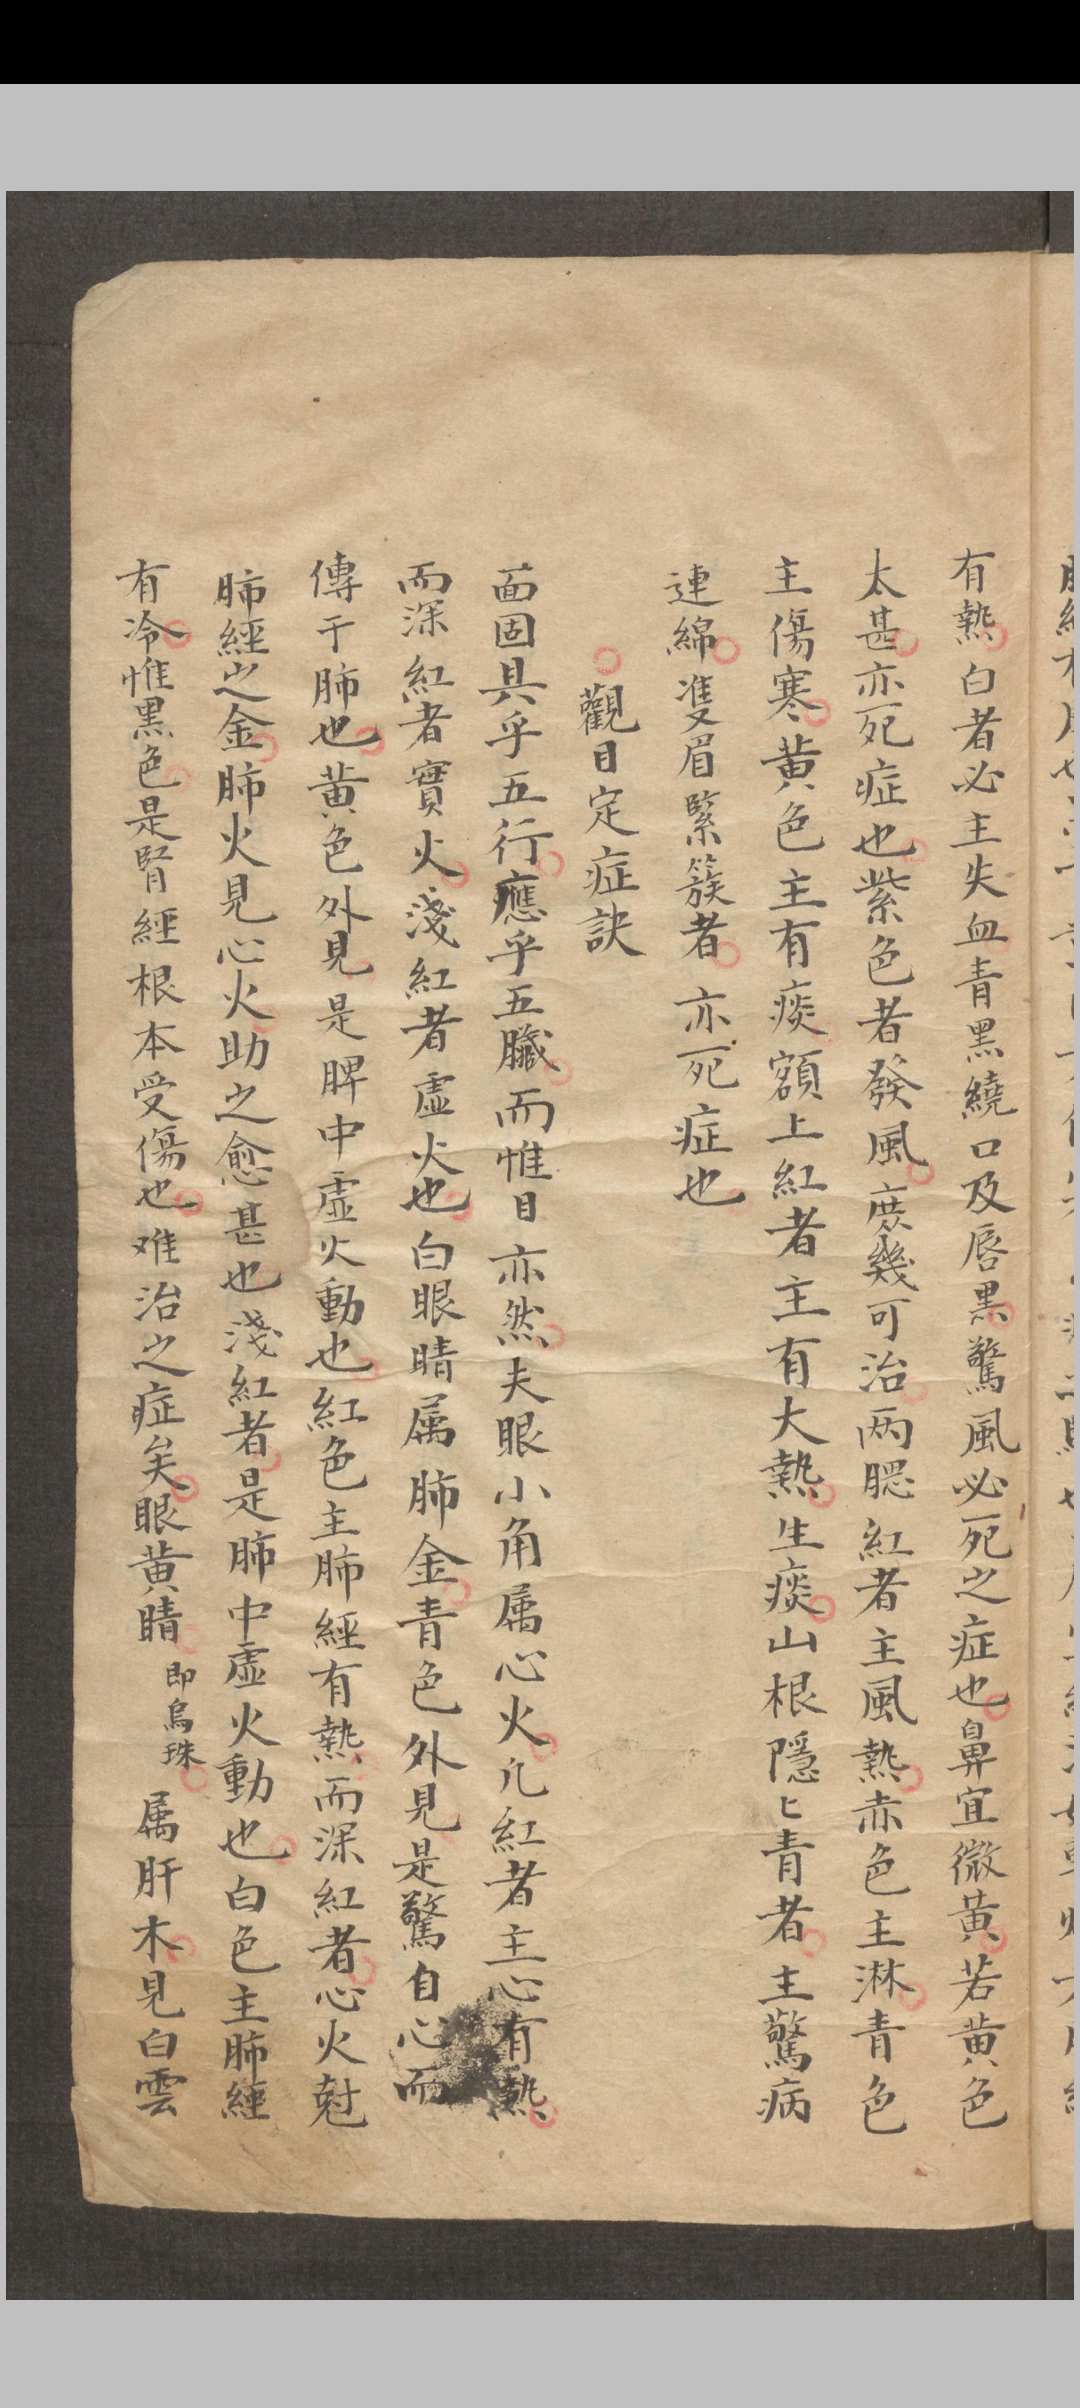 有熱白者必主失血青黑繞口及唇黑驚風必死之症也鼻宜微黄若黄色
太甚亦死症也紫色者發風庶幾可治两腮紅者主風熱赤色主淋青色
主傷寒黄色主有痰額上紅者主有大熱生痰山根隱〻青者主驚病
連綿雙眉緊簇者亦死症也
觀目定症訣
面固具乎五行應乎五臟而惟目亦然夫眼小角属心火凢紅者主心有熱
而深紅者實火淺紅者虛火也白眼睛属肺金青色外見是驚自心而
傳于肺也黄色外見是脾中虛火動也紅色主肺經有熱而深紅者心火尅
肺經之金肺火見心火助之愈甚也淺紅者是肺中虛火動也白色主肺經
有冷惟黑色是腎經根本受傷也难治之症矣眼黄睛即烏珠属肝木見白雲